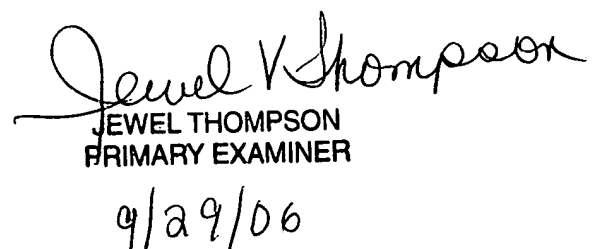 Jewel V Thompson
JEWEL THOMPSON
PRIMARY EXAMINER
9/29/06